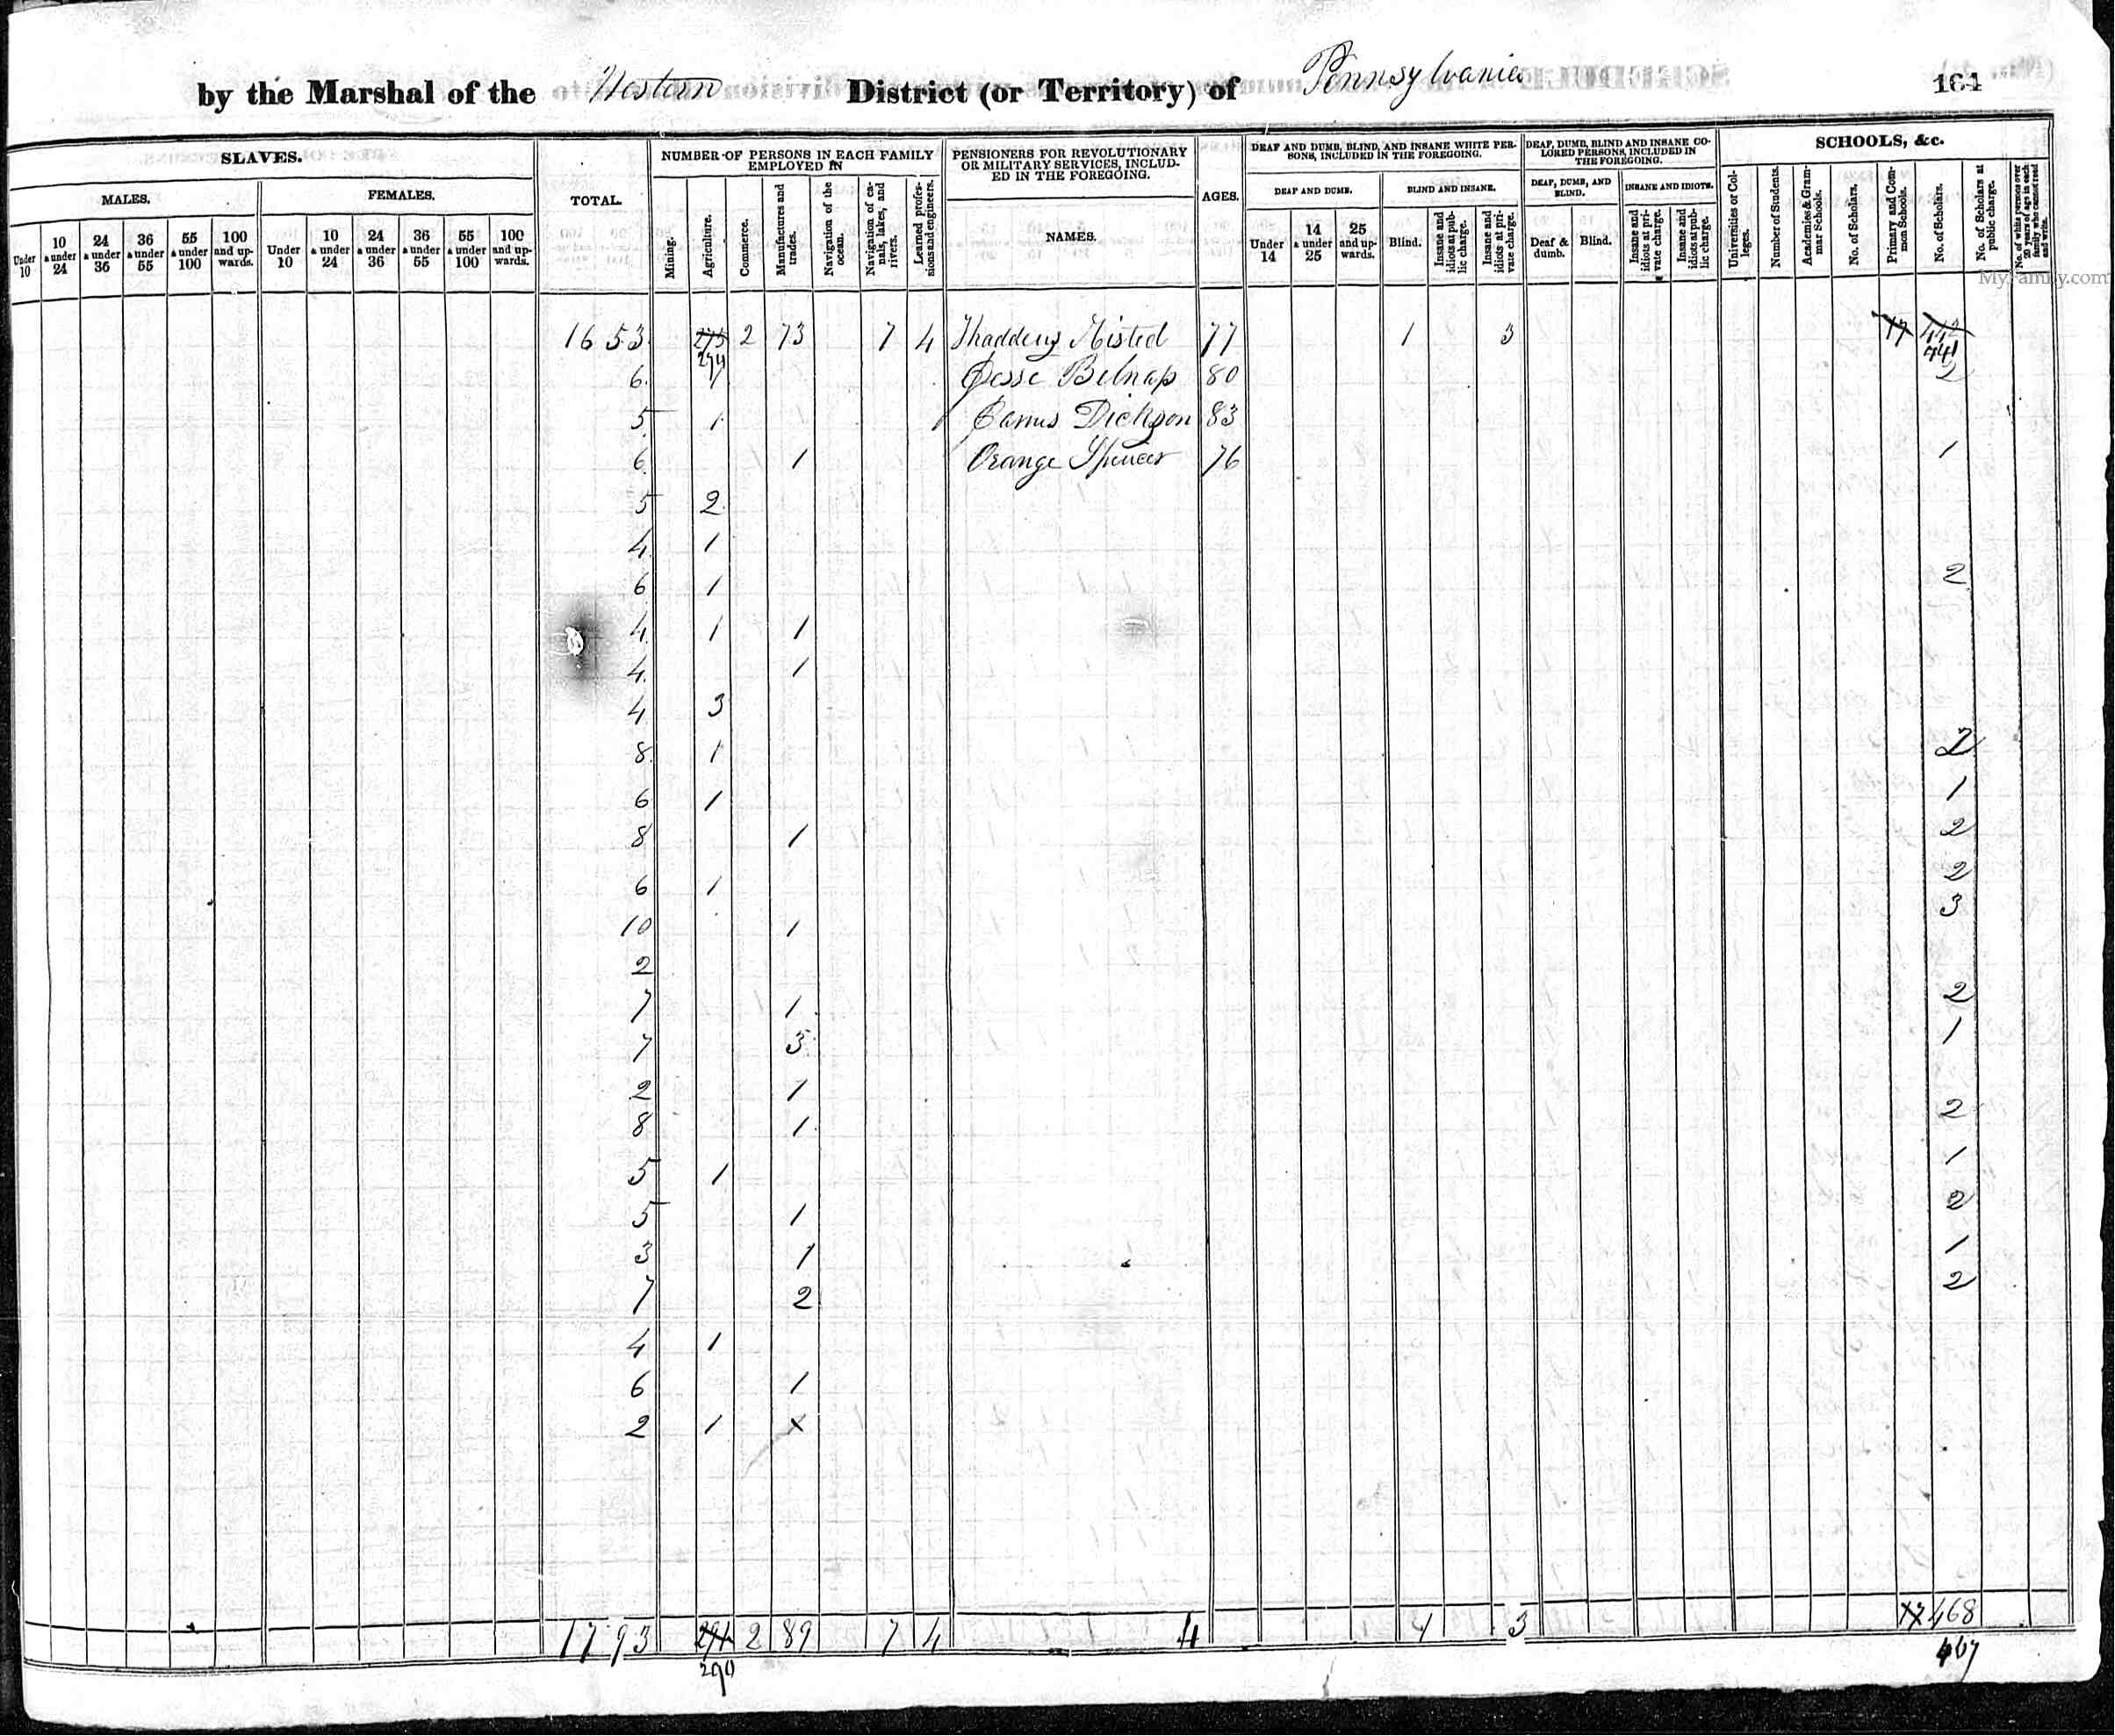 by the Marshal of the Western District (or Territory) of Pennsylvania 164
SLAVES.
MALES.
FEMALES.
Under 10
10 & under 24
24 & under 36
36 & under 55
55 & under 100
100 and upwards.
Under 10
10 & under 24
24 & under 36
36 & under 55
55 & under 100
100 and upwards.
TOTAL.
NUMBER OF PERSONS IN EACH FAMILY EMPLOYED IN
Mining.
Agriculture.
Commerce.
Manufactures and trades.
Navigation of the ocean.
Navigation of canals, lakes, and rivers.
Learned professions and engineers.
PENSIONERS FOR REVOLUTIONARY OR MILITARY SERVICES, INCLUDED IN THE FOREGOING.
NAMES.
AGES.
DEAF AND DUMB, BLIND, AND INSANE WHITE PERSONS, INCLUDED IN THE FOREGOING.
DEAF AND DUMB.
Under 14
14 & under 25
25 and upwards.
BLIND AND INSANE.
Blind.
Insane and idiots at public charge.
Insane and idiots at private charge.
DEAF, DUMB, BLIND AND INSANE COLORED PERSONS, INCLUDED IN THE FOREGOING.
DEAF, DUMB, AND BLIND.
Deaf & dumb.
Blind.
INSANE AND IDIOTS.
Insane and idiots at private charge.
Insane and idiots at public charge.
SCHOOLS, &c.
Universities or Colleges.
Number of Students.
Academies & Grammar Schools.
No. of Scholars.
Primary and Common Schools.
No. of Scholars.
No. of Scholars at public charge.
No. of white persons over 20 years of age in each family who cannot read and write.
MyFamily.com
1653 275 2 73 7 4 Thaddeus 77 1 3 17 442
274 441
6 1 Jesse Belnap 80 2
5 1 James Dickson 83
6 1 Orange Spencer 76 1
5 2
4 1
6 1 2
4 1 1
4 1
4 3
8 1 2
6 1 1
8 1 2
6 1 2
10 1 3
2
7 1 2
7 3 1
2 1
8 1 2
5 1 1
5 1 2
3 1 1
7 2 2
4 1
6 1
2 1 x
1793 291 2 89 7 4 4 1 3 17 468
290 467